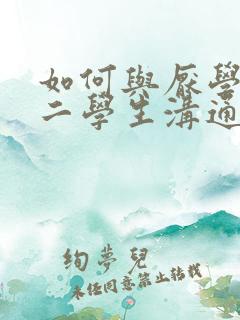 如何與厭學
二學生溝通
絢夢兒
未經同意禁止轉載